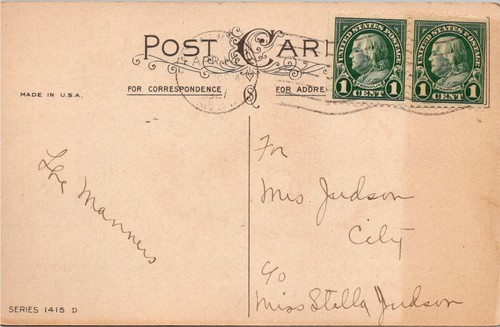 POST CARD
UNITED STATES POSTAGE
1 CENT 1
UNITED STATES POSTAGE
1 CENT 1
MADE IN U.S.A.
FOR CORRESPONDENCE
FOR ADDRE
The Manners
For
Mrs Judson
City
c/o
Miss Stella Judson
SERIES 1415 D